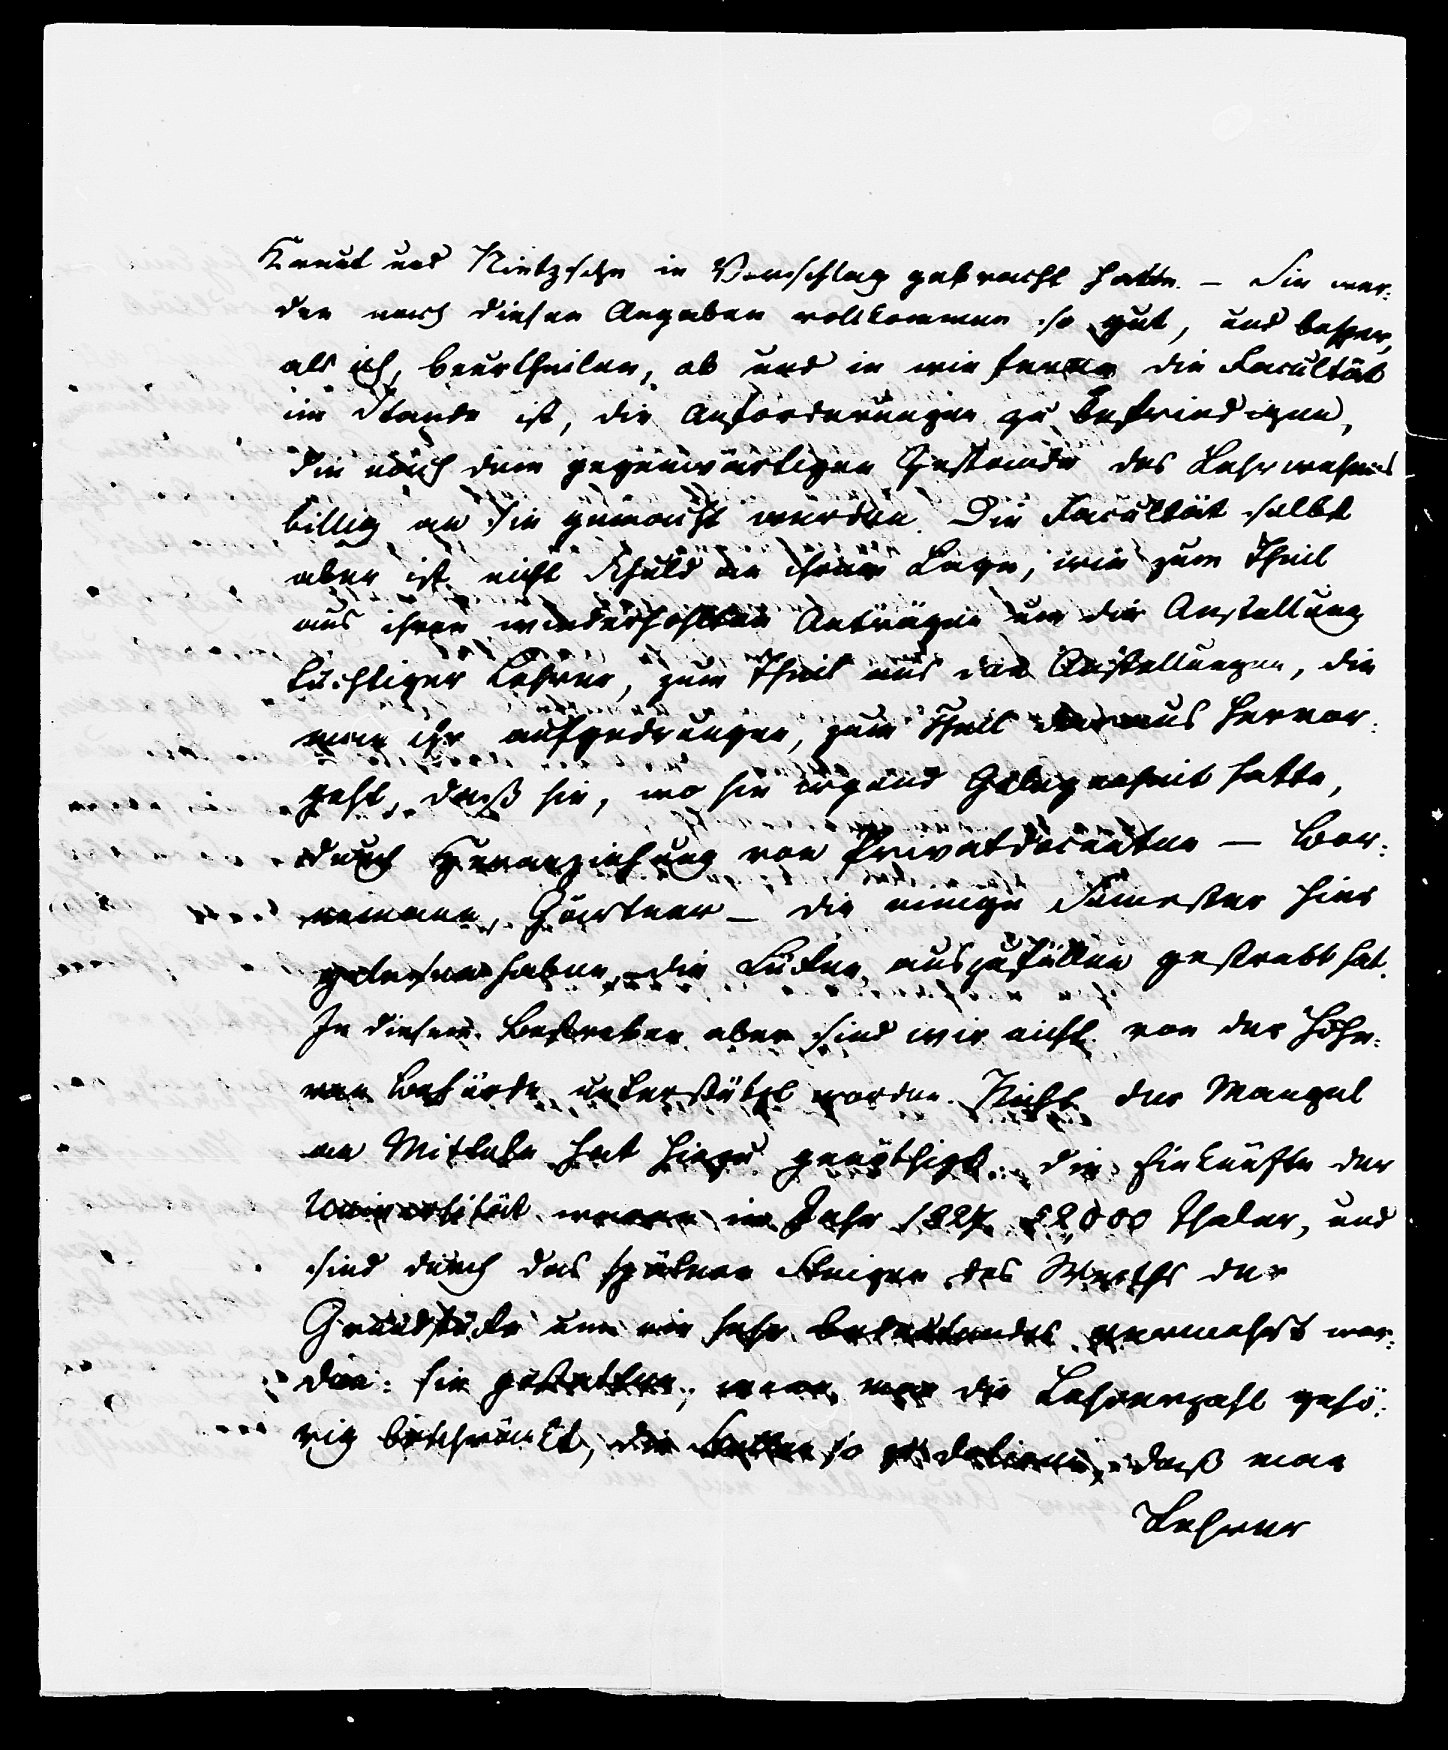 Kraut und Nietzsche in Vorschlag gebracht hatte. – Sie wer-
den nach diesen Angaben vollkommen so gut, und besser,
als ich, beurtheilen, ob und in wie ferne die Facultät
im Stande ist, die Anforderungen zu befriedigen,
die nach dem gegenwärtigen Zustande des Lehrwesens
billig an sie gemacht werden. Die Facultät selbst
aber ist nicht Schuld an ihrer Lage, wie zum Theil
aus ihren wiederhohlten Anträgen um die Anstellung
tüchtiger Lehrer, zum Theil aus den Anstellungen, die
man ihr aufgedrungen, zum Theil daraus hervor-
geht, daß sie, wo sie irgend Gelegenheit hatte,
durch Heranziehung von Privatdocenten – Bor-
nemann, Gärtner – die einige Semester hier
gelesen haben, die Lücken auszufüllen gestrebt hat.
In diesem Bestreben aber sind wir nicht von der höhe-
ren Behörde unterstützt worden. Nicht der Mangel
an Mitteln hat hiezu genöthigt: die Einkünfte der
Universität waren im Jahr 1827 000 Thaler, und
sind durch das spätere Steigen des Werths der
Grundstücke um ein sehr bedeutendes vermehrt wor-
den: sie gestatten, wenn man die Lehrerzahl gehö-
rig beschränkt, die Stellen so zu dotiren, daß man
Lehrer